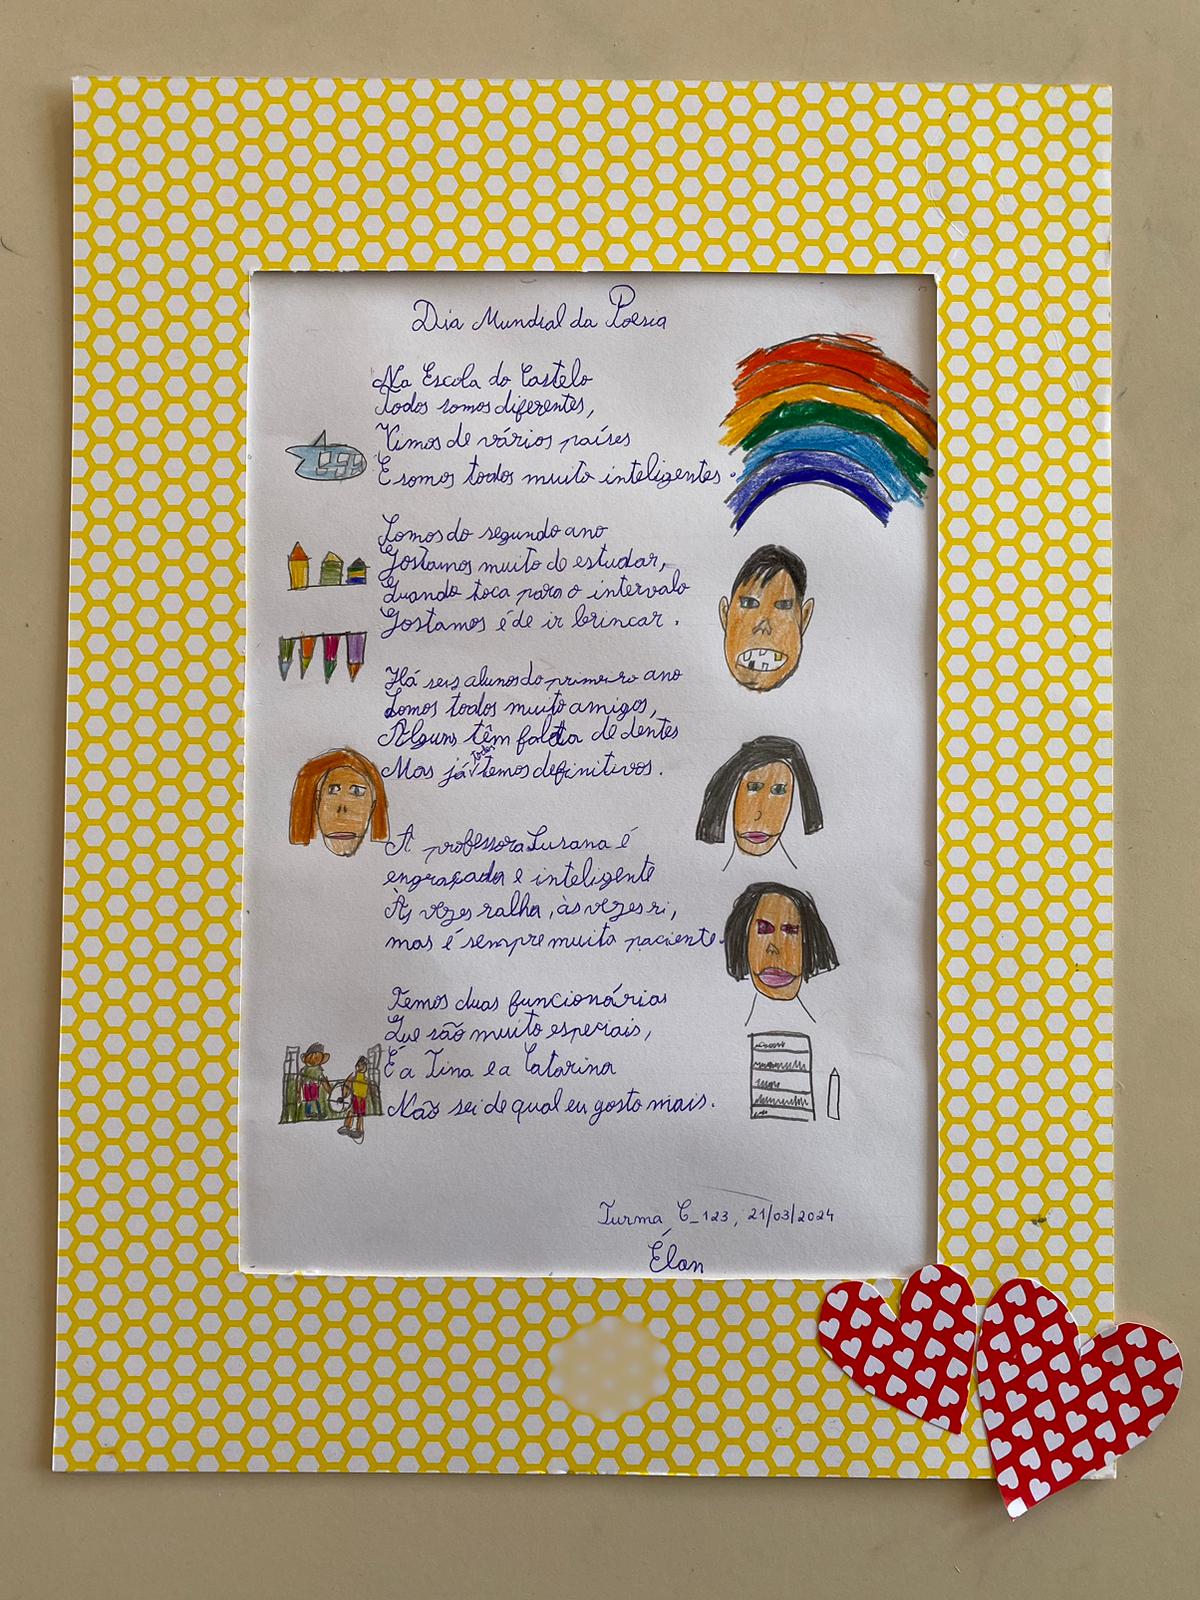 Dia Mundial da Poesia
Na Escola do Castelo
Todos somos diferentes,
Vimos de vários países
E somos todos muito inteligentes.
Somos do segundo ano
Gostamos muito de estudar,
Quando toca para o intervalo
Gostamos é de ir brincar.
Há seis alunos do primeiro ano
Somos todos muito amigos,
Alguns têm falta de dentes
Mas já todos temos definitivos.
A professora Susana é
engraçada e inteligente
Às vezes ralha, às vezes ri,
mas é sempre muito paciente.
Temos duas funcionárias
Que são muito especiais,
É a Tina e a Catarina
Não sei de qual eu gosto mais.
Turma C_123, 21/03/2024
Élan